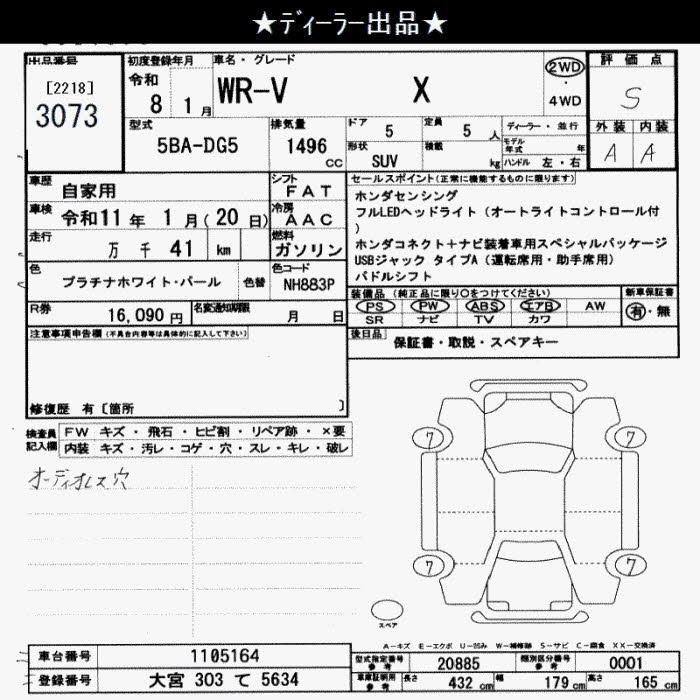 ★ディーラー出品★
出品番号
[2218]
3073
初度登録年月
令和
8 1月
車名・グレード
WR-V X
2WD
・
4WD
評価点
S
外装 内装
A A
型式
5BA-DG5
排気量
1496
cc
ドア 5 定員 5 人
形状
SUV
積載 kg
ディーラー・並行
モデル年式 年
ハンドル 左・右
車歴
自家用
シフト
FAT
車検
令和11年 1月(20日)
冷房
AAC
走行
万 千 41 km
燃料
ガソリン
色
プラチナホワイト・パール
色替
色コード
NH883P
R券
16,090円
名変通知期限
月 日
セールスポイント(正常に機能するものに限ります)
ホンダセンシング
フルLEDヘッドライト(オートライトコントロール付
)
ホンダコネクト+ナビ装着車用スペシャルパッケージ
USBジャック タイプA(運転席用・助手席用)
パドルシフト
装備品(純正品に限り○をつけてください)
PS PW ABS エアB AW
SR ナビ TV カワ
新車保証書
有・無
後日品
保証書・取説・スペアキー
注意事項申告欄(不具合内容等は具体的に記入して下さい)
修復歴 有〔箇所 〕
検査員
記入欄
FW キズ・飛石・ヒビ割・リペア跡・×要
内装 キズ・汚レ・コゲ・穴・スレ・キレ・破レ
オーディオレス穴
7 7
7 7
スペア
A-キズ E-エクボ U-凹み W-補修跡 S-サビ C-腐食 XX-交換済
車台番号 1105164
登録番号 大宮 303 て 5634
型式指定番号
参考
20885
類別区分番号
参考
0001
車庫証明用
参考
長さ 432 cm 幅 179 cm 高さ 165 cm